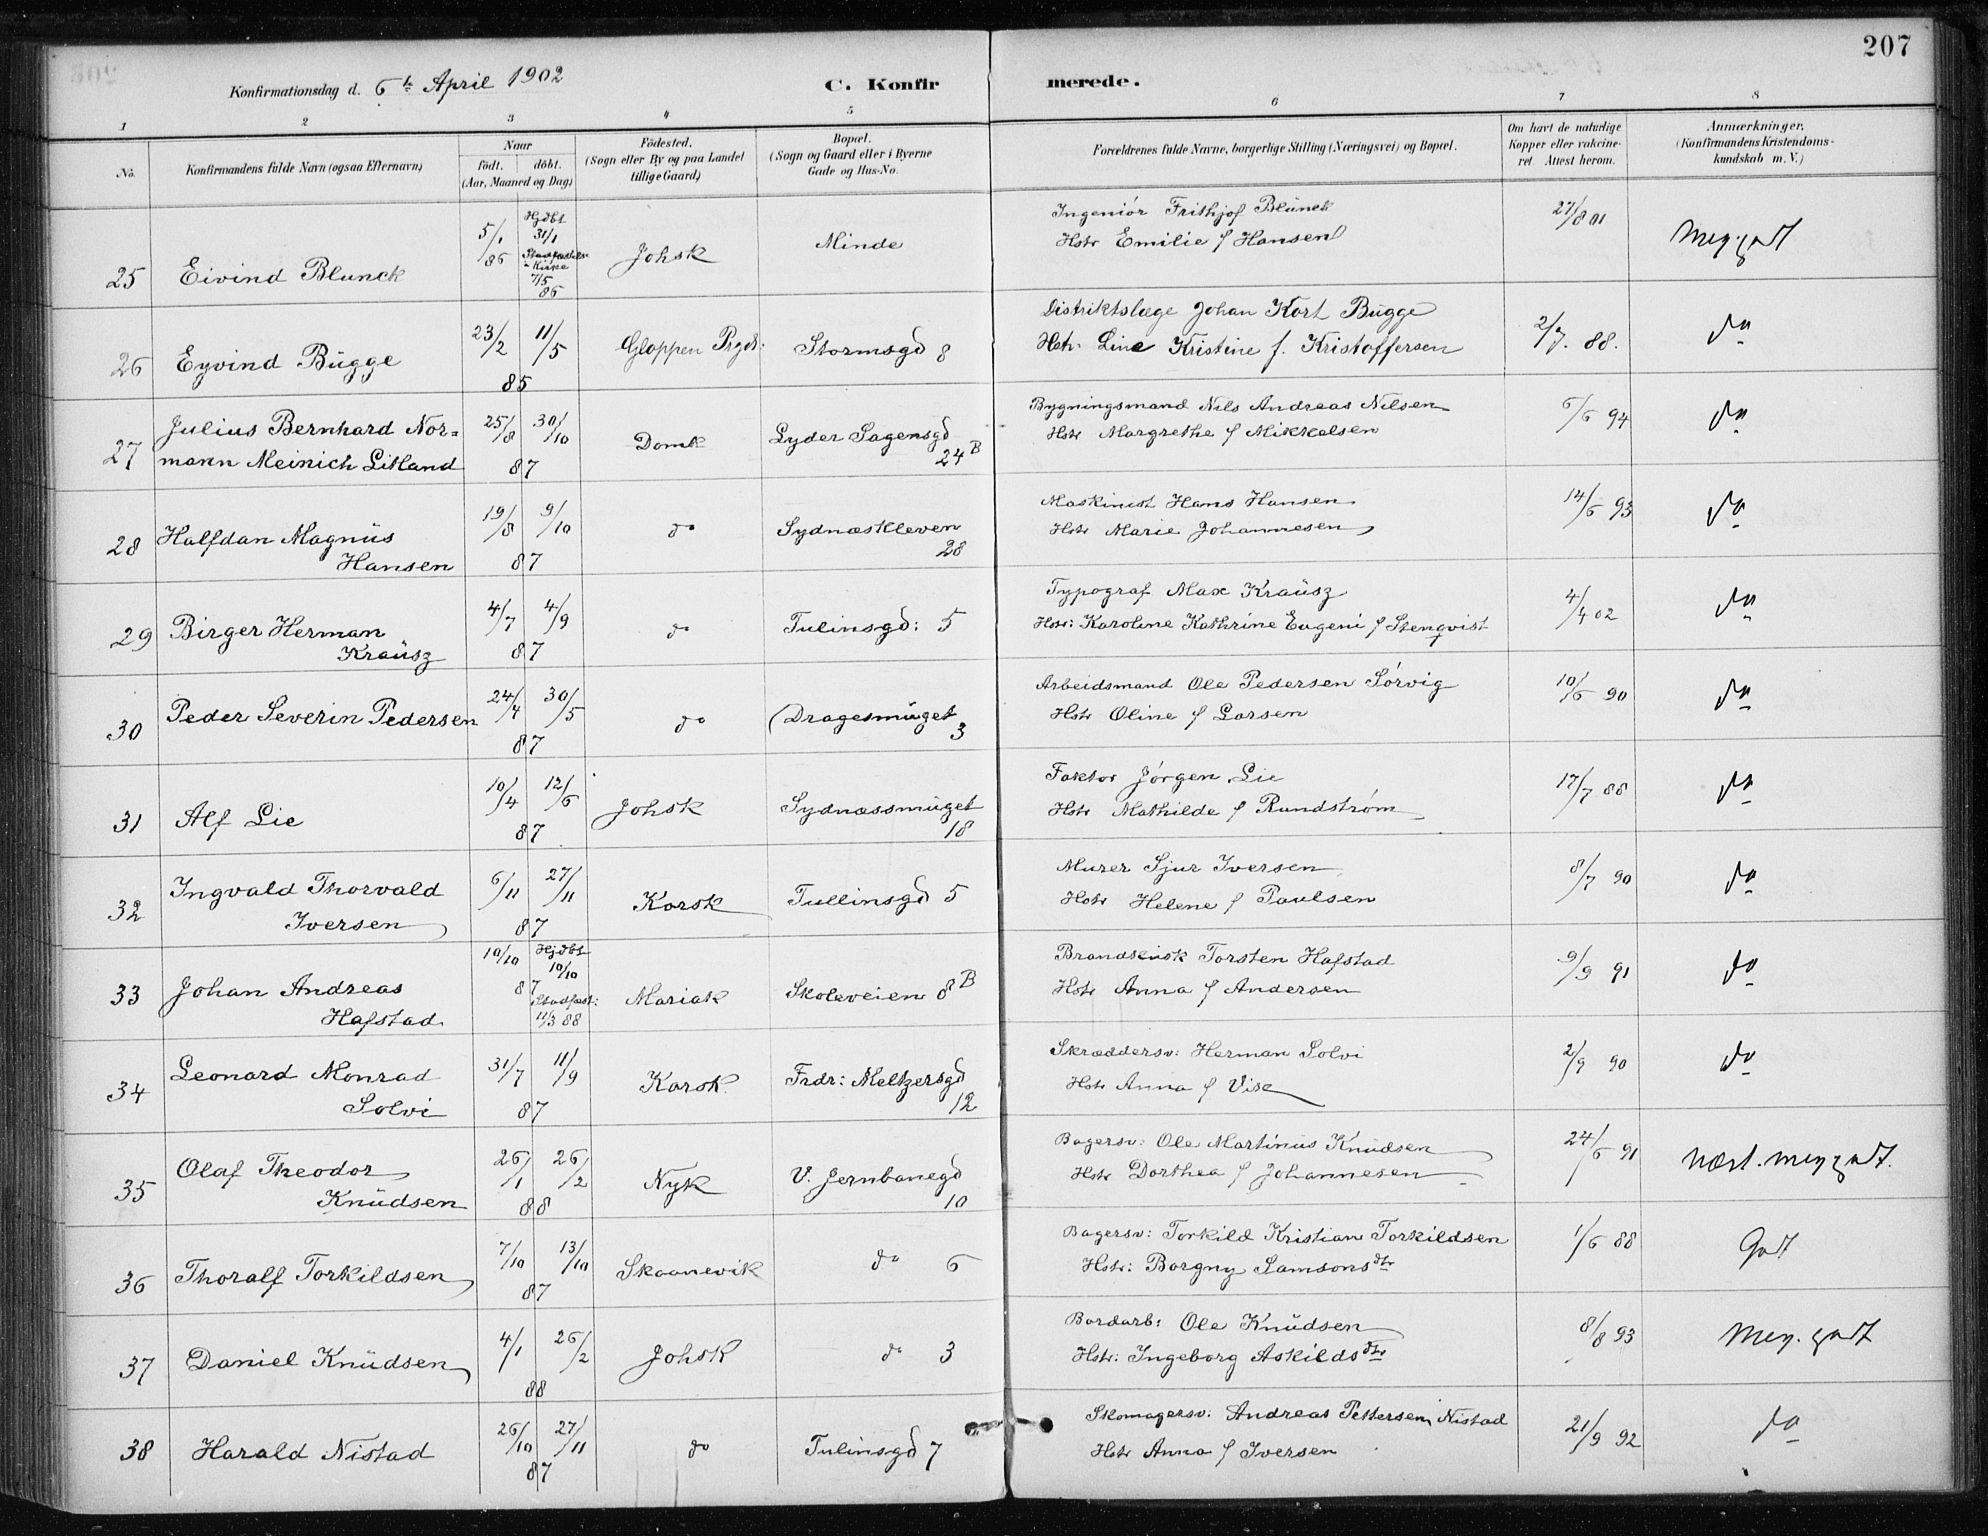 207
Konfirmationsdag d. 6te April 1902
C. Konfirmerede.
1 2 3 4 5 6 7 8
No.
Konfirmandens fulde Navn (ogsaa Efternavn)
Naar
Födt. döbt.
(Aar, Maaned og Dag)
Födested.
(Sogn eller By og paa Landet
tillige Gaard)
Bopæl.
(Sogn og Gaard eller i Byerne
Gade og Hus-No.
Forældrenes fulde Navne, borgerlige Stilling (Næringsvei) og Bopæl.
Om havt de naturlige
Kopper eller vakcine-
ret. Attest herom.
Anmærkninger.
(Konfirmandens Kristendoms-
kundskab m. V.)
25 Eivind Blunck
5/1 86
Hjdbt
31/1
Kirke
7/5
86
Johsk
Minde
Ingeniör Frithjof Blünck
Hstr Emilie f Hansen
27/8 01
Meg. godt
26 Eyvind Bügge
23/2 11/5
85
Gloppen Prgd:
Stormsgd 8
Distriktslæge Johan Kort Bügge
Hstr. Line Kristine f. Kristoffersen
2/7. 88.
do
27 Julius Bernhard Nor=
mann Meinich Litland
25/8 30/10
87
Domk
Lyder Sagensgd
24 B
Bygningsmand Nils Andreas Nilsen
Hstr Margrethe f Mikkelsen
6/6 94
do
28 Halfdan Magnüs
Hansen
19/8 9/10
87
do
Sydnæskleven
28
Maskinist Hans Hansen
Hstr Marie Johannesen
14/6 93
do
29 Birger Herman
Kraüsz
4/7 4/9
87
do
Tulinsgd: 5
Typograf Max Kraüsz
Hstr: Karoline Kathrine Eugeni f Stenqvist
4/4 02
do
30 Peder Severin Pedersen
24/4 30/5
87
do
Dragesmüget
3
Arbeidsmand Ole Pedersen Sörvig
Hstr Oline f Larsen
10/6 90
do
31 Alf Lie
10/4 12/6
87
Johsk
Sydnæssmüget
18
Faktor Jörgen Lie
Hstr Mathilde f Rundström
17/7 88
do
32 Ingvald Thorvald
Iversen
6/11 27/11
87
Korsk
Tullinsgd 5
Murer Sjur Iversen
Hstr Helene f Paulsen
8/7 90
do
33 Johan Andreas
Hafstad
10/10
87
Hjdbt
10/10
Stadfæst:
11/3 88
Mariak
Skoleveien 8 B
Torsten Hafstad
Hstr Anna f Andersen
9/9 91
do
34 Leonard Monrad
Solvi
31/7 11/9
87
Korsk
Frdr: Meltzersgd
12
Skræddersv: Herman Solvi
Hstr Anna f Vise
2/9 90
do
35 Olaf Theodor
Knüdsen
26/1 26/2
88
Nyk
V. Jernbanegd
10
Bagersv: Ole Martinus Knüdsen
Hstr Dorthea f Johannesen
24/6 91
Næst. meg godt.
36 Thoralf Torkildsen
7/10 13/10
87
Skaanevik
do 6
Bagersv: Torkild Kristian Torkildsen
Hstr: Borgny Samsonsdtr
1/6 88
Godt
37 Daniel Knüdsen
4/1 26/2
88
Johsk
do 3
Bordarb: Ole Knüdsen
Hstr: Ingeborg Askildsdtr
8/8 93
Meg. godt
38 Harald Nistad
26/10 27/11
87
do
Tulinsgd 7
Skomagersv: Andreas Pettersen Nistad
Hstr Anna f Iversen
21/9 92
do